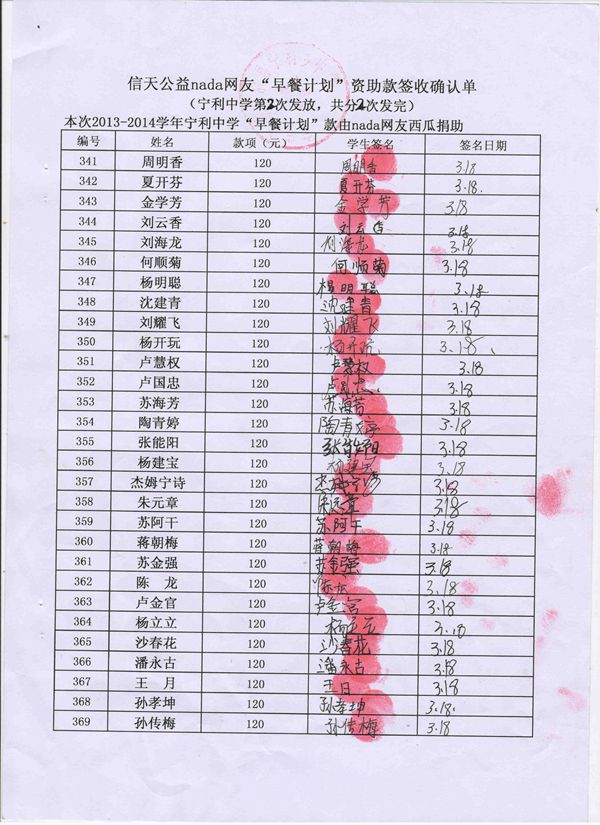 信天公益nada网友“早餐计划”资助款签收确认单
（宁利中学第2次发放，共分2次发完）
本次2013-2014学年宁利中学“早餐计划”款由nada网友西瓜捐助
编号 姓名 款项（元） 学生签名 签名日期
341 周明香 120 周明香 3.18
342 夏开芬 120 夏开芬 3.18.
343 金学芳 120 金学芳 3.18
344 刘云香 120 刘云香 3.18
345 刘海龙 120 刘海龙 3.18
346 何顺菊 120 何顺菊 3.18
347 杨明聪 120 杨明聪 3.18
348 沈建青 120 沈建青 3.18
349 刘耀飞 120 刘耀飞 3.18
350 杨开玩 120 杨开玩 3.18、
351 卢慧权 120 卢慧权 3.18
352 卢国忠 120 卢国忠 3.18
353 苏海芳 120 苏海芳 3.18
354 陶青婷 120 陶青婷 3.18
355 张能阳 120 张能阳 3.18
356 杨建宝 120 杨建宝 3.18
357 杰姆宁诗 120 杰姆宁诗 3.18
358 朱元章 120 朱元章 3.18
359 苏阿干 120 苏阿干 3.18
360 蒋朝梅 120 蒋朝梅 3.18
361 苏金强 120 苏金强 3.18
362 陈 龙 120 陈龙 3.18
363 卢金官 120 卢金官 3.18
364 杨立立 120 3.18
365 沙春花 120 沙春花 3.18
366 潘永古 120 潘永古 3.18
367 王 月 120 王月 3.18
368 孙孝坤 120 孙孝坤 3.18.
369 孙传梅 120 孙传梅 3.18